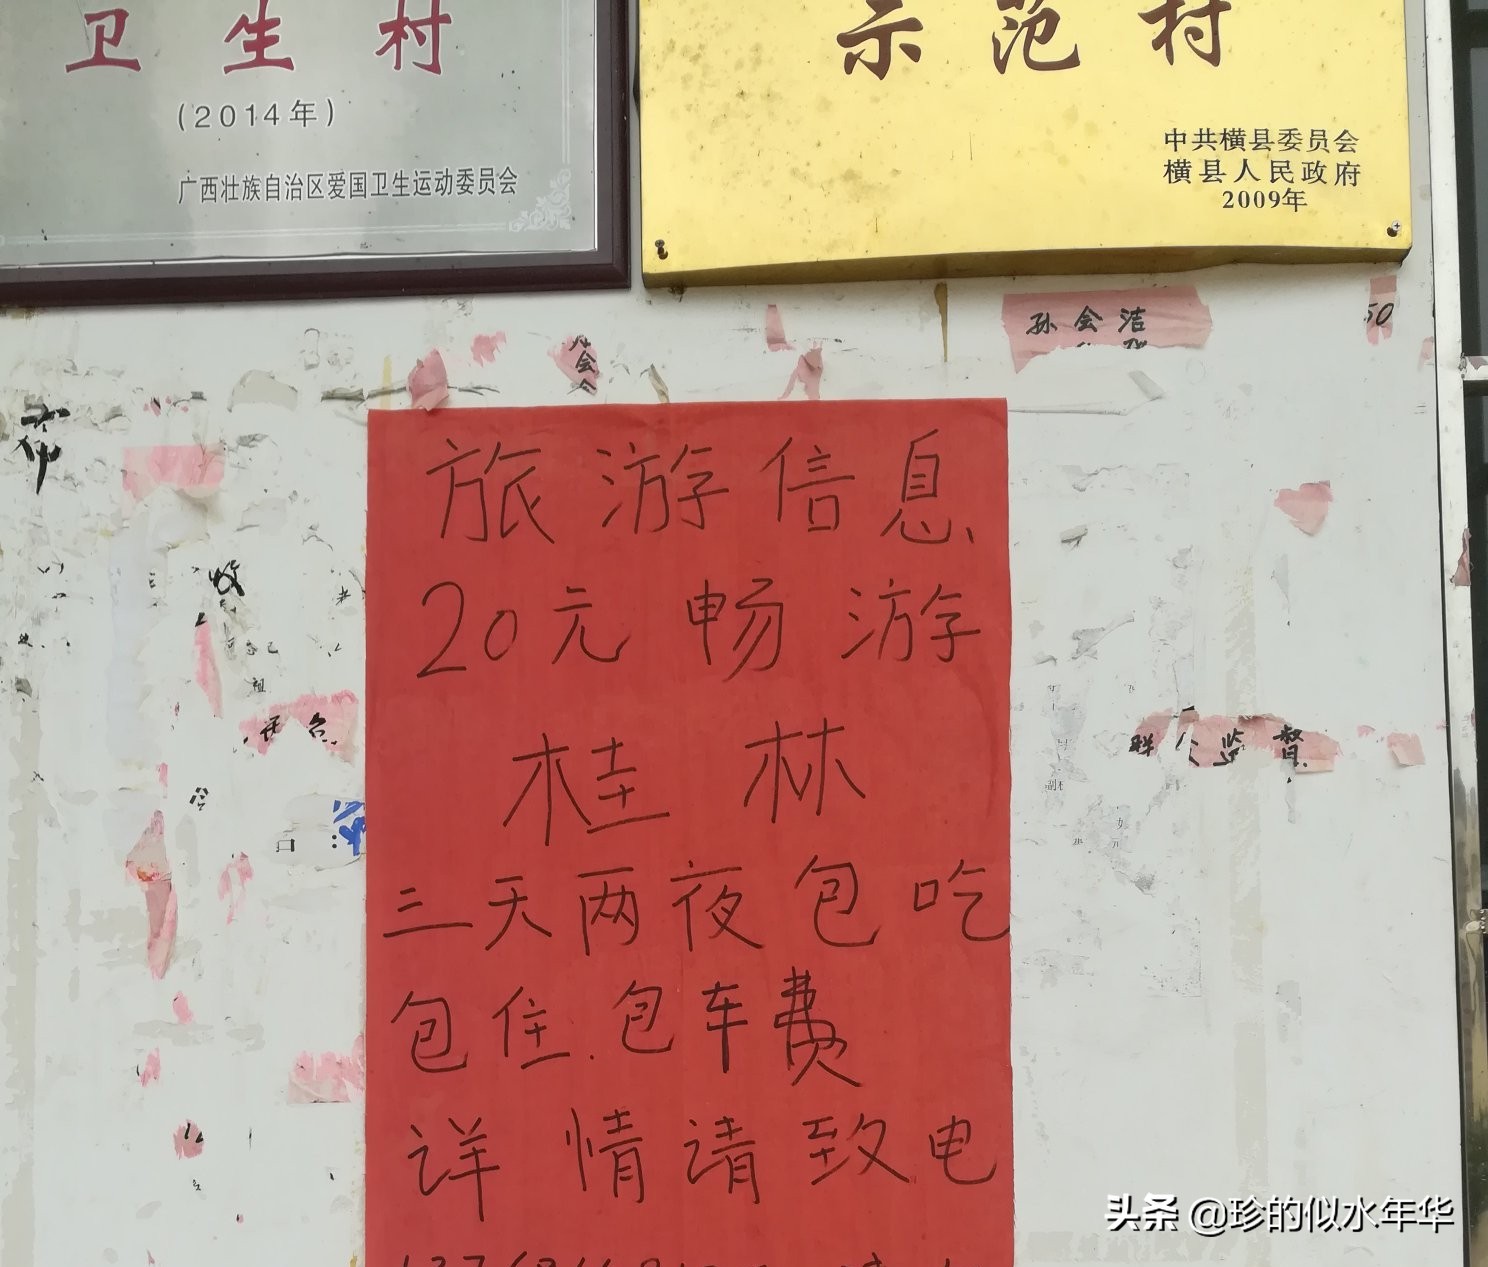 卫生村
(2014年)
广西壮族自治区爱国卫生运动委员会
示范村
中共横县委员会
横县人民政府
2009年
孙会洁
50
旅游信息
20元畅游
桂林
三天两夜包吃
包住.包车费
详情请致电
监督
头条 @珍的似水年华